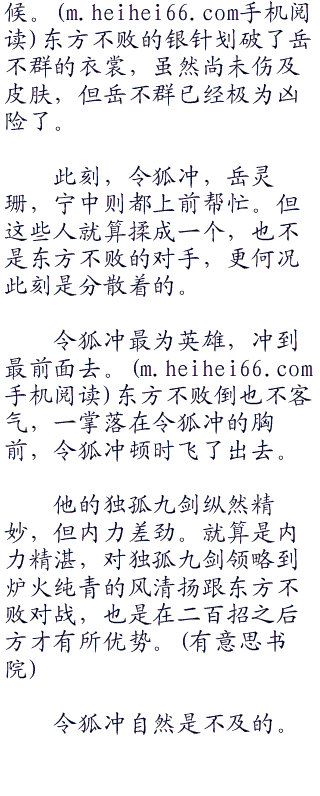 候。(m.heihei66.com手机阅
读)东方不败的银针划破了岳
不群的衣裳，虽然尚未伤及
皮肤，但岳不群已经极为凶
险了。
此刻，令狐冲，岳灵
珊，宁中则都上前帮忙。但
这些人就算揉成一个，也不
是东方不败的对手，更何况
此刻是分散着的。
令狐冲最为英雄，冲到
最前面去。(m.heihei66.com
手机阅读)东方不败倒也不客
气，一掌落在令狐冲的胸
前，令狐冲顿时飞了出去。
他的独孤九剑纵然精
妙，但内力差劲。就算是内
力精湛，对独孤九剑领略到
炉火纯青的风清扬跟东方不
败对战，也是在二百招之后
方才有所优势。(有意思书
院)
令狐冲自然是不及的。